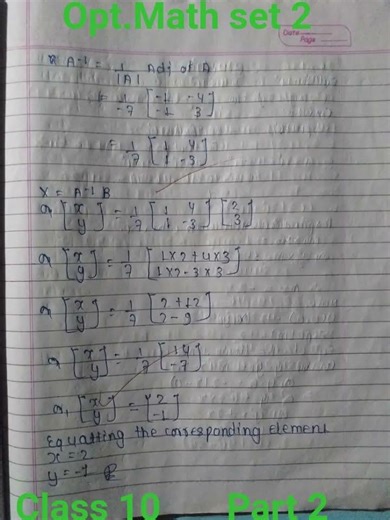 Opt.Math set 2
Date
Page
A⁻¹ = 1/|A| Adj of A
= 1/-7 [-1 -4; -1 3]
= 1/7 [1 4; 1 -3]
X = A⁻¹ B
or [x; y] = 1/7 [1 4; 1 -3] [2; 3]
or [x; y] = 1/7 [1×2+4×3; 1×2-3×3]
or [x; y] = 1/7 [2+12; 2-9]
or [x; y] = 1/7 [14; -7]
or, [x; y] = [2; -1]
Equatting the corresponding element
x = 2
y = -1
Class 10 Part 2